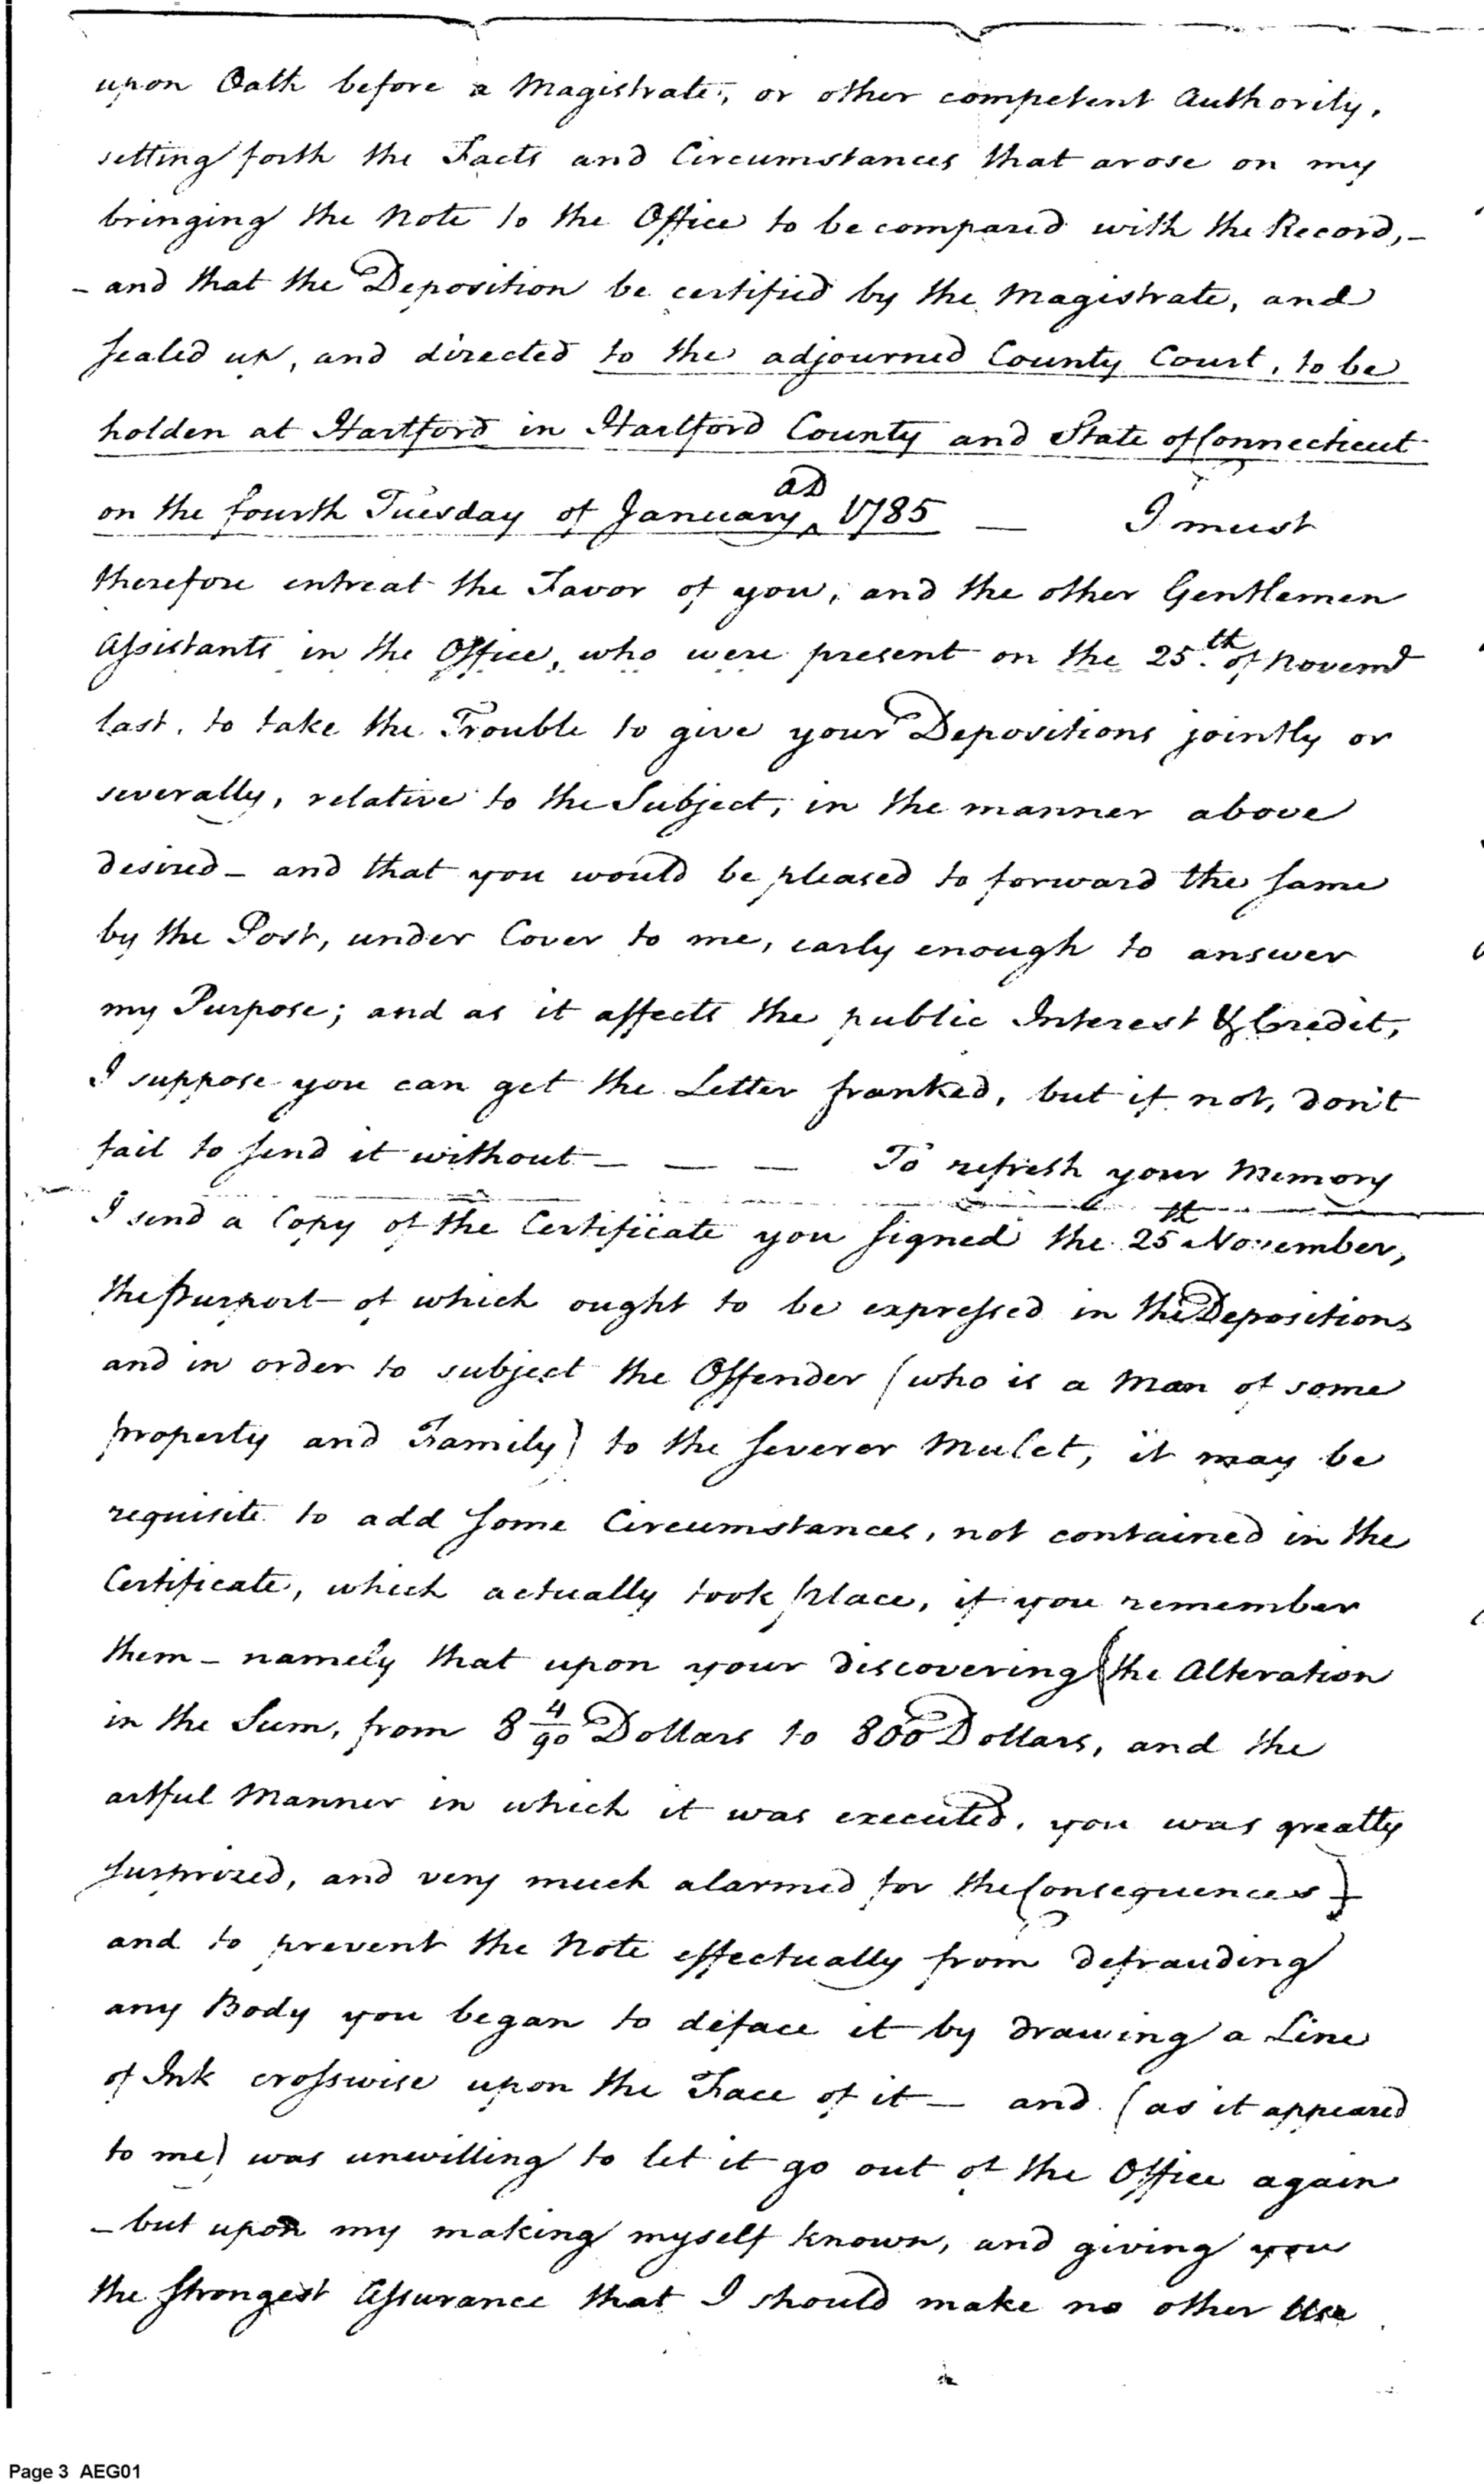 upon Oath before a Magistrate, or other competent Authority,
setting forth the Facts and Circumstances that arose on my
bringing the Note to the Office to be compared with the Record, -
- and that the Deposition be certified by the Magistrate, and
sealed up, and directed to the adjourned County Court, to be
holden at Hartford in Hartford County and State of Connecticut
on the fourth Tuesday of January AD 1785 — I must
therefore entreat the Favor of you, and the other Gentlemen
Assistants in the Office, who were present on the 25.th of Novemr
last, to take the Trouble to give your Depositions jointly or
severally, relative to the Subject, in the manner above
desired - and that you would be pleased to forward the same
by the Post, under Cover to me, early enough to answer
my Purpose; and as it affects the public Interest & Credit,
I suppose you can get the Letter franked, but if not, don't
fail to send it without — — — To refresh your Memory
I send a Copy of the Certificate you signed the 25th November,
the Purport of which ought to be expressed in the Depositions
and in order to subject the Offender (who is a Man of some
property and Family) to the severer Mulct, it may be
requisite to add some Circumstances, not contained in the
Certificate, which actually took place, if you remember
them - namely that upon your discovering the Alteration
in the Sum, from 8 4/90 Dollars to 800 Dollars, and the
artful Manner in which it was executed, you was greatly
surprized, and very much alarmed for the Consequences -
and to prevent the Note effectually from defrauding
any Body you began to deface it by drawing a Line
of Ink crosswise upon the Face of it — and (as it appeared
to me) was unwilling to let it go out of the Office again
- but upon my making myself known, and giving you
the strongest Assurance that I should make no other Use
Page 3 AEG01